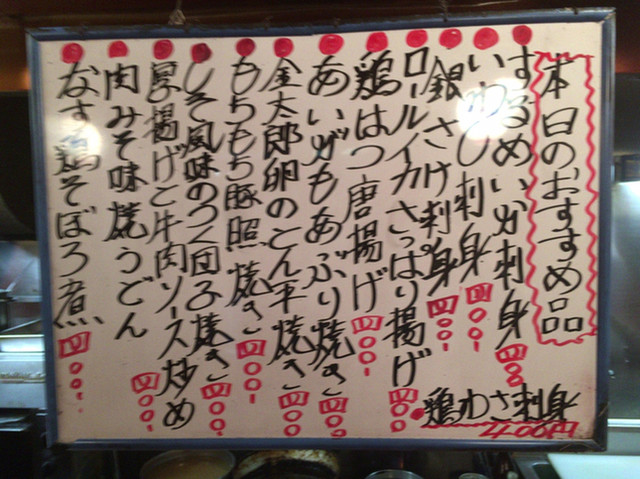 本日のおすすめ品
するめいか刺身 四〇〇
いわし刺身 四〇〇
銀さけ刺身 四〇〇
ロールイカさっぱり揚げ 四〇〇
鶏はつ唐揚げ 四〇〇
あいがもあぶり焼き 四〇〇
金太郎卵のとん平焼き 四〇〇
もちもち豚照り焼き 四〇〇
しそ風味のつく団子焼き 四〇〇
厚揚げと牛肉ソース炒め 四〇〇
肉みそ味焼うどん
なす鶏そぼろ煮 四〇〇
鶏わさ刺身
400円